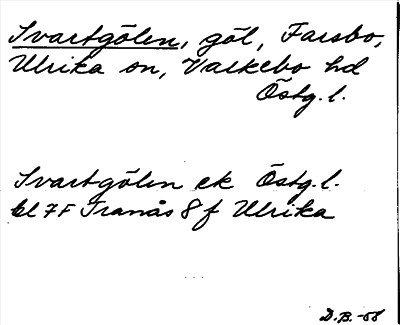 Svartgölen, göl, Farsbo,
Ulrika sn, Valkebo hd
Östg. l.
Svartgölen ek Östg. l.
bl 7F Tranås 8 f Ulrika
D.B. -68